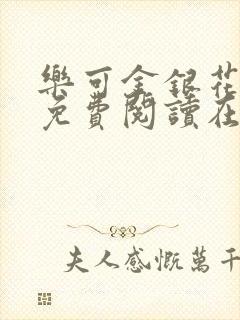 樂可金銀花
免費閱讀在
夫人感慨萬千